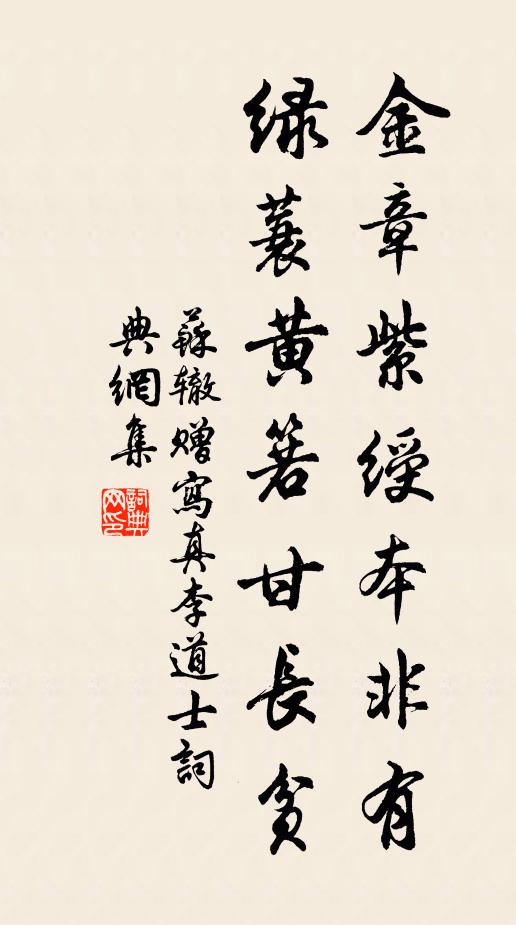 金章紫綬本非有
綠蓑黃箬甘長貧
蘇轍贈寫真李道士詞
典網集
詞典网印